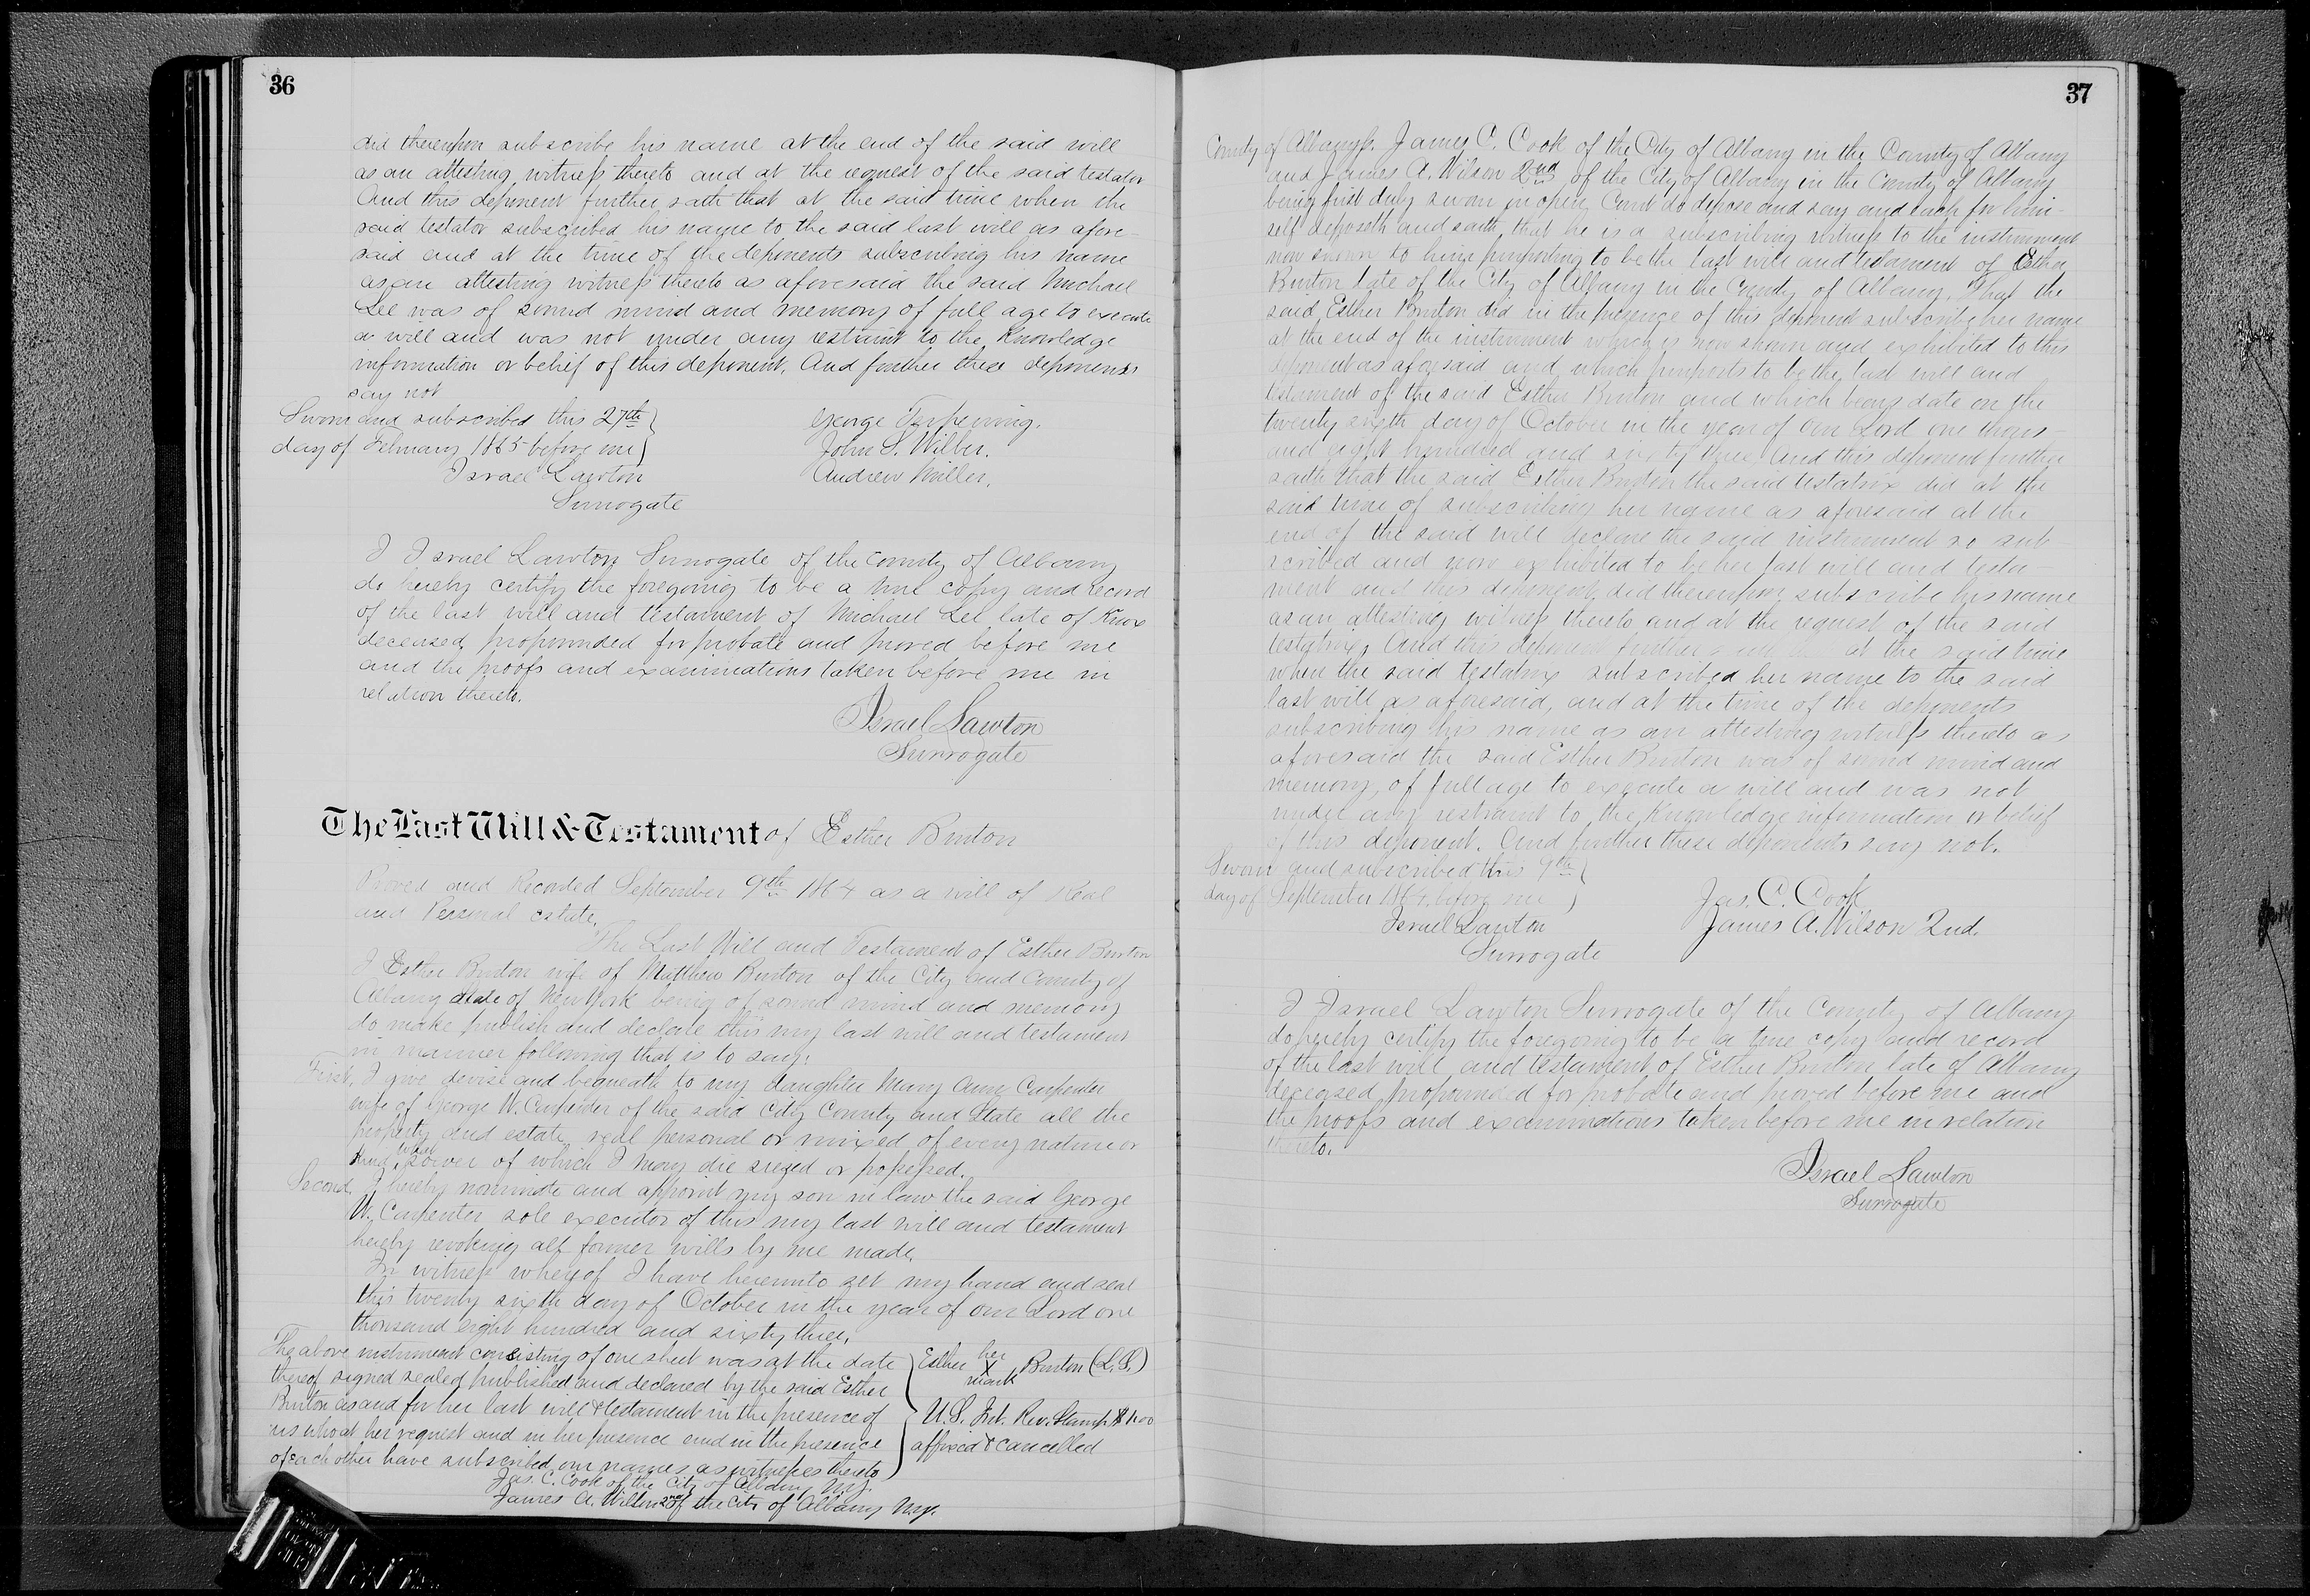 36
did thereupon subscribe his name at the end of the said will
as an attesting witness thereto and at the request of the said testator
And this deponent further saith that at the said time when the
said testator subscribed his name to the said last will as afore-
said and at the time of the deponents subscribing his name
as an attesting witness thereto as aforesaid the said Michael
Lee was of sound mind and memory of full age to execute
a will and was not under any restraint to the knowledge
information or belief of this deponent, And further these deponents
say not
Sworn and subscribed this 27th
day of February 1865 before me
Israel Lawton
Surrogate
George Terpenning.
John S. Wilber.
Andrew Miller.
I Israel Lawton Surrogate of the County of Albany
do hereby certify the foregoing to be a true copy and record
of the last will and testament of Michael Lee late of Knox
deceased, propounded for probate and proved before me
and the proofs and examinations taken before me in
relation thereto.
Israel Lawton
Surrogate
The Last Will & Testament of Esther Burton
Proved and Recorded September 9th 1864 as a will of Real
and Personal estate.
The Last Will and Testament of Esther Burton
I Esther Burton wife of Matthew Burton of the City and County of
Albany State of New York being of sound mind and memory
do make publish and declare this my last will and testament
in manner following that is to say:
First, I give devise and bequeath to my daughter Mary Ann Carpenter
wife of George W. Carpenter of the said City County and State all the
property and estate, real personal or mixed of every nature or
kind soever of which I may die siezed or possessed.
Second, I hereby nominate and appoint my son in law the said George
W. Carpenter sole executor of this my last will and testament
hereby revoking all former wills by me made,
In witness whereof I have hereunto set my hand and seal
this twenty sixth day of October in the year of our Lord one
thousand eight hundred and sixty three.
The above instrument consisting of one sheet was at the date
thereof signed sealed published and declared by the said Esther
Burton as and for her last will & testament in the presence of
us who at her request and in her presence and in the presence
of each other have subscribed our names as witnesses thereto
Esther her X mark Burton (L.S.)
U.S. Int. Rev. Stamp $1.00
affixed & cancelled
Jas. C. Cook of the City of Albany N.Y.
James A. Wilson 2nd of the City of Albany N.Y.
37
County of Albany ss. James C. Cook of the City of Albany in the County of Albany
and James A. Wilson 2nd of the City of Albany in the County of Albany
being first duly sworn in open Court do depose and say and each for him-
self deposeth and saith, that he is a subscribing witness to the instrument
now shown to him purporting to be the last will and testament of Esther
Burton late of the City of Albany in the County of Albany, That the
said Esther Burton did in the presence of this deponent subscribe her name
at the end of the instrument which is now shown and exhibited to this
deponent as aforesaid and which purports to be the last will and
testament of the said Esther Burton and which bears date on the
twenty sixth day of October in the year of our Lord one thous-
and eight hundred and sixty three, And this deponent further
saith that the said Esther Burton the said testatrix did at the
said time of subscribing her name as aforesaid at the
end of the said will declare the said instrument so sub-
scribed and now exhibited to be her last will and testa-
ment and this deponent did thereupon subscribe his name
as an attesting witness thereto and at the request of the said
testatrix, And this deponent further at the said time
when the said testatrix subscribed her name to the said
last will as aforesaid, and at the time of the deponents
subscribing his name as an attesting witness thereto as
aforesaid the said Esther Burton was of sound mind and
memory, of full age to execute a will and was not
under any restraint to the knowledge information or belief
of this deponent. And further these deponents say not.
Sworn and subscribed this 9th
day of September 1864, before me
Israel Lawton
Surrogate
Jas. C. Cook
James A. Wilson 2nd.
I Israel Lawton Surrogate of the County of Albany
do hereby certify the foregoing to be a true copy and record
of the last will and testament of Esther Burton late of Albany
deceased, propounded for probate and proved before me and
the proofs and examinations taken before me in relation
thereto.
Israel Lawton
Surrogate